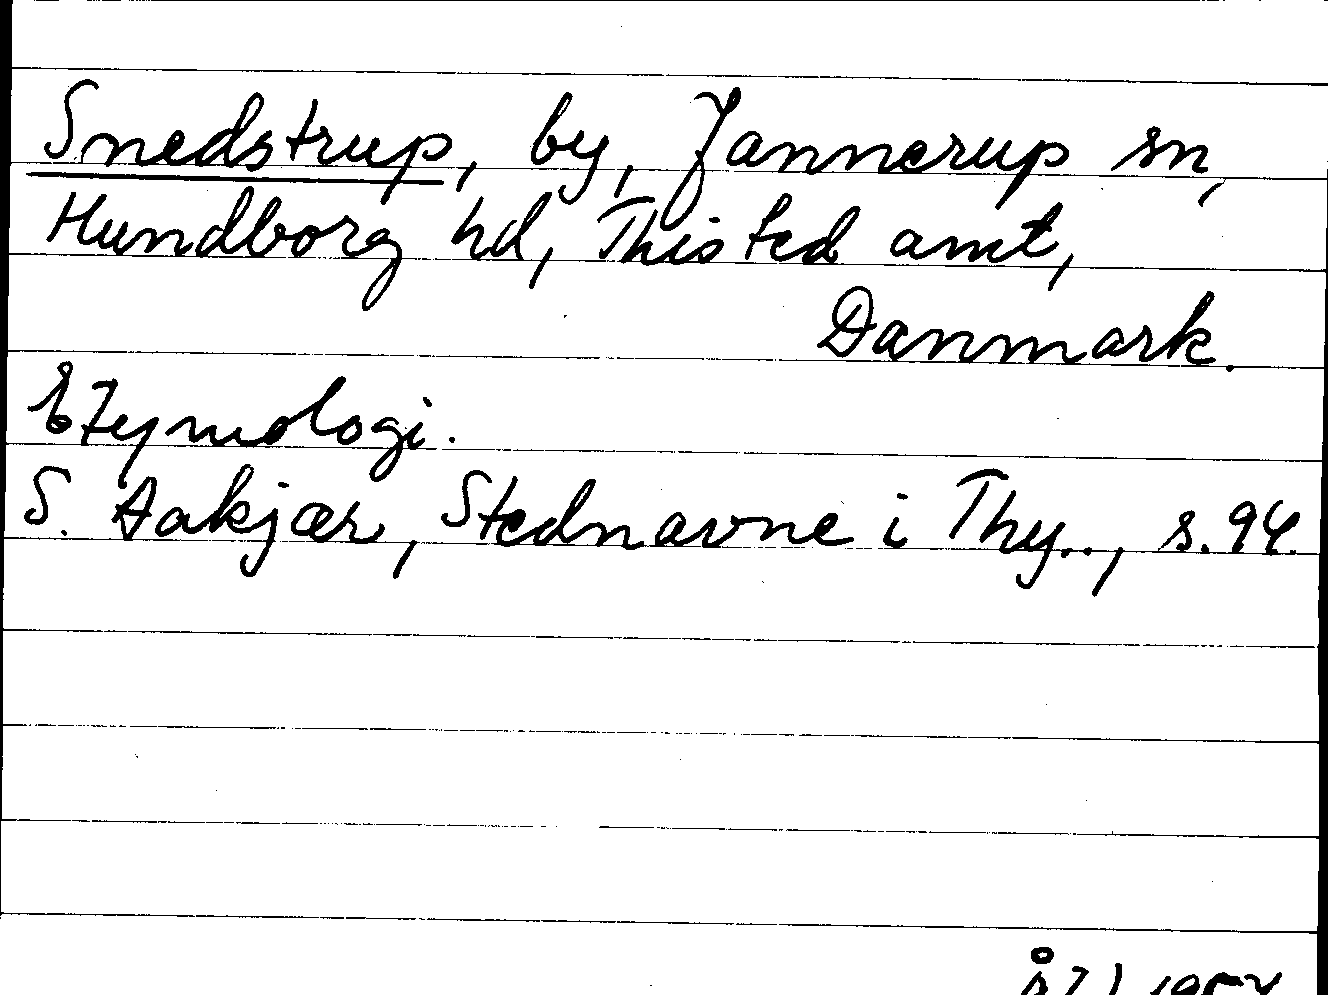 Snedstrup, by, Jannerup sn,
Hundborg hd, Thisted amt,
Danmark.
Etymologi.
S. Aakjær, Stednavne i Thy.., s. 94.